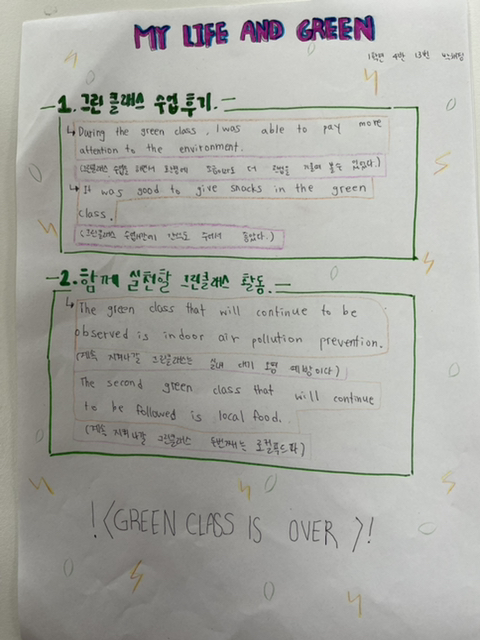 MY LIFE AND GREEN
1학년 4반 13번
1. 그린 클래스 수업 후기.
During the green class, I was able to pay more
attention to the environment.
(그린클래스 수업을 하면서 환경에 조금이라도 더 관심을 기울여 볼 수 있었다.)
It was good to give snacks in the green
class.
(그린클래스 수업시간에 간식도 주셔서 좋았다.)
2. 함께 실천할 그린클래스 활동.
The green class that will continue to be
observed is indoor air pollution prevention.
(계속 지켜나갈 그린클래스는 실내 대기 오염 예방이다)
The second green class that will continue
to be followed is local food.
(계속 지켜나갈 그린클래스 두번째는 로컬푸드다)
!<GREEN CLASS IS OVER>!